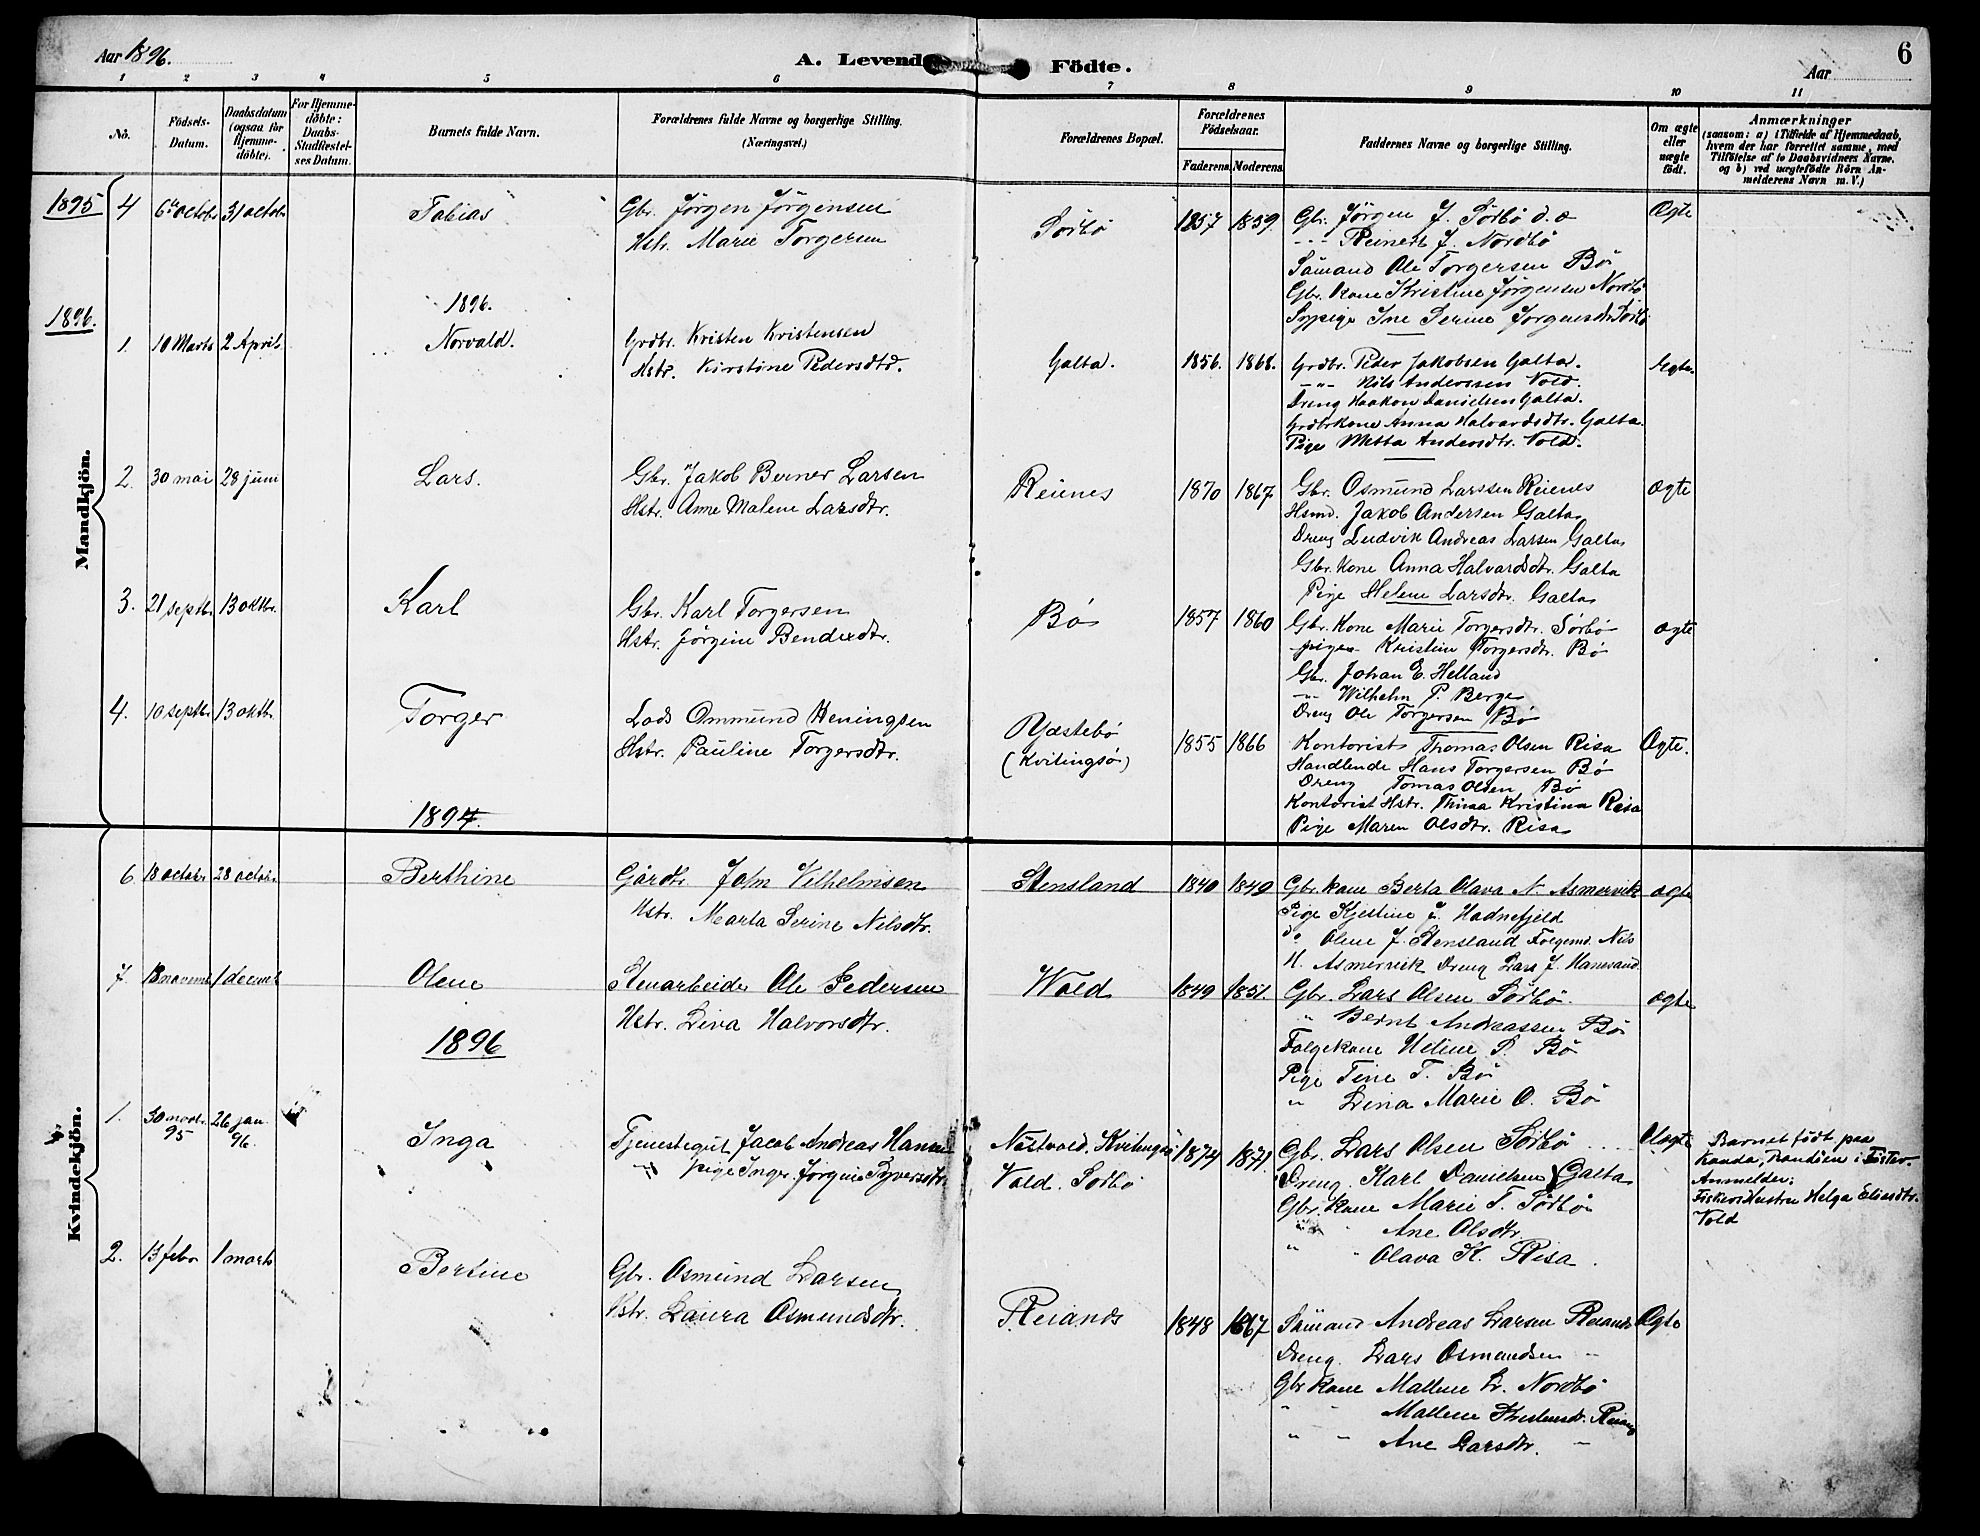 Aar 1896.
A. Levende Födte.
Aar
6
1 2 3 4 5 6 7 8 9 10 11
No.
Födsels-Datum.
Daabsdatum (ogsaa for Hjemme-döbte).
For Hjemme-döbte: Daabs-Stadfæstel-ses Datum.
Barnets fulde Navn.
Forældrenes fulde Navne og borgerlige Stilling.
(Næringsvei.)
Forældrenes Bopæl.
Forældrenes Födselsaar.
Faderens. Moderens.
Faddernes Navne og borgerlige Stilling.
Om ægte eller uægte födt.
Anmærkninger
(saasom: a) i Tilfælde af Hjemmedaab, hvem der har forrettet samme, med Tilföielse af to Daabsvidners Navne, og b) ved uægtefödte Börn An-melderens Navn m. V.)
Mandkjön.
1895 4 6te octobr 31 octobr Tobias
Gbr. Jörgen Jörgensen
Hstr. Marie Torgersen
Sörbö 1857 1859
Gbr. Jörgen J. Sörbö d. æ
--- Reinert J. Nordbö
Sömand Ole Torgersen Bö
Gbr. kone Kristine Jörgensen Nordbö
Sypige Ine Serine Jorgensdtr Sörbö
Ægte
1896.
1896.
1. 10 Marts 2 April Norvald.
Grdbr. Kristen Kristensen
Hstr. Kirstine Pedersdtr.
Galta. 1856. 1868.
Grdbr. Peder Jakobsen Galta.
-"- Nils Anderssen Vold.
Dreng Haakon Danielsen Galta.
Grdbrkone Anna Halvardsdtr. Galta.
Pige Metta Andersdtr. Vold.
Ægte
2. 30 mai 28 juni Lars.
Gbr. Jakob Berner Larsen
Hstr. Anne Malene Larsdtr.
Reienes 1870 1867
Gbr. Osmund Larssen Reienes
Hsmd. Jakob Andersen Galta
Dreng Ludvik Andreas Larsen Galta
Gbr. kone Anna Halvardsdtr. Galta
Pige Helene Larsdtr. Galta
ægte
3. 21 septbr 13 oktbr. Karl
Gbr. Karl Torgersen
Hstr. Jörgine Bendixdtr.
Bö 1857 1860
Gbr. Kone Marie Torgersdtr. Sörbö
pigen Kristine Torgersdtr. Bö
Gbr. Johan E. Helland
-"- Wilhelm P. Berge
Dreng Ole Torgersen Bö
ægte
4. 10 septbr 13 oktbr. Torger
Lods Ommund Heningsen
Hstr. Pauline Torgersdtr.
Ydstebö
(Kvitingsö) 1855 1866
Kontorist Thomas Olsen Risa
Handlende Hans Torgersen Bö
Dreng Tomas Olsen Bö
Kontorist Hstr. Thina Kristina Risa
Pige Maren Olsdtr. Risa
Ægte.
Kvindekjön.
1894.
6 18 octobr. 28 octobr. Berthine
Gårdbr. John Vilhelmsen
Hstr. Marta Serine Nilsdtr.
Stensland 1840 1849
Gbr kone Berta Olava N. Asmervik
Pige Kjestine J. Hadnefjeld
do Olene J. Stensland Folgemd. Nils
H. Asmervik Dreng Lars J. Hanesand
ægte
7. 13 novemb 1 decemb Olene
Stenarbeider Ole Pedersen
Hstr. Lina Halvorsdtr.
Wold 1849 1851.
Gbr. Lars Olsen Sörbö.
" Bernt Andreassen Bö
Folgekone Heline P. Bö
Pige Tine T. Bö
" Lina Marie O. Bö
ægte
1896
1. 30 novbr. 95 26 jan. 96. Inga
Tjenestegut Jacob Andreas Hansen
" pige Inger Jörgine Syversdtr.
Nötvold. Kvitingsö
Vold. Sörbö 1874 1871.
Gbr. Lars Olsen Sörbö
Dreng Karl Danielsen Galta
Gbr. kone Marie T. Sörbö
" Ane Olsdtr.
" " Olava K. Risa.
Uægte
Barnet födt paa
Randöen i
Anmelder:
Fiskershustru Helga Eliasdtr.
Vold
2. 13 febr 1 marts Bertine
Gbr. Osmund Larsen
Hstr. Laura Osmundsdtr.
Reianes 1848 1867
Sömand Andreas Larsen Reianes
Dreng. Lars Osmundsen -
Gbr kone Mallene L. Nordbö
" - Mallene Reianes
" - Ane Larsdtr. -
Ægte